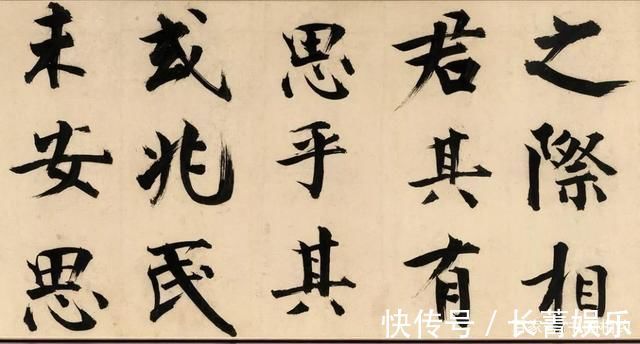 之際相
君其有
思乎其
或兆民
未安思
快传号 / 长菁娱乐